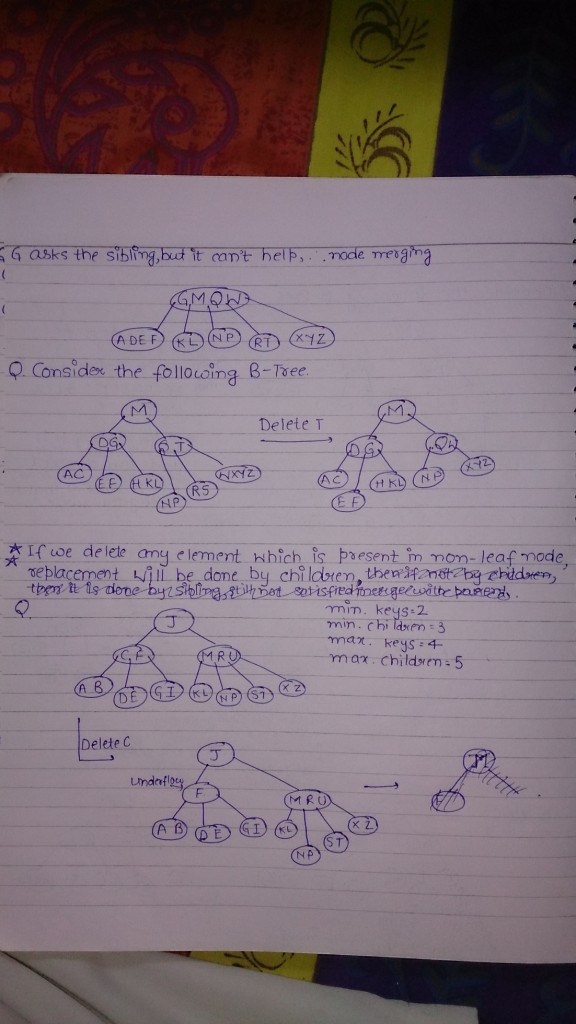 G asks the sibling, but it can't help, ∴ node merging
GMQW
ADEF KL NP RT XYZ
Q. Consider the following B-Tree.
M Delete T M
DG QT DG QW
AC EF HKL NP RS WXYZ AC EF HKL NP XYZ
* If we delete any element which is present in non-leaf node,
* replacement will be done by children, then if not by children,
then it is done by sibling, still not satisfied merge with parent.
Q. min. keys=2
J min. children=3
CF MRU max. keys=4
AB DE GI KL NP ST XZ max. children=5
Delete C
J M
Underflow F MRU
AB DE GI KL NP ST XZ